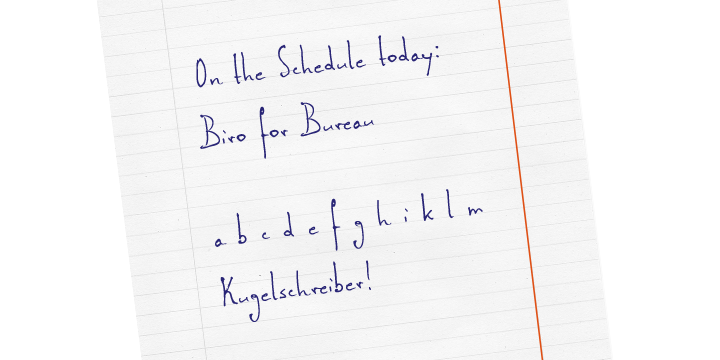 On the Schedule today:
Biro for Bureau
a b c d e f g h i k l m
Kugelschreiber!